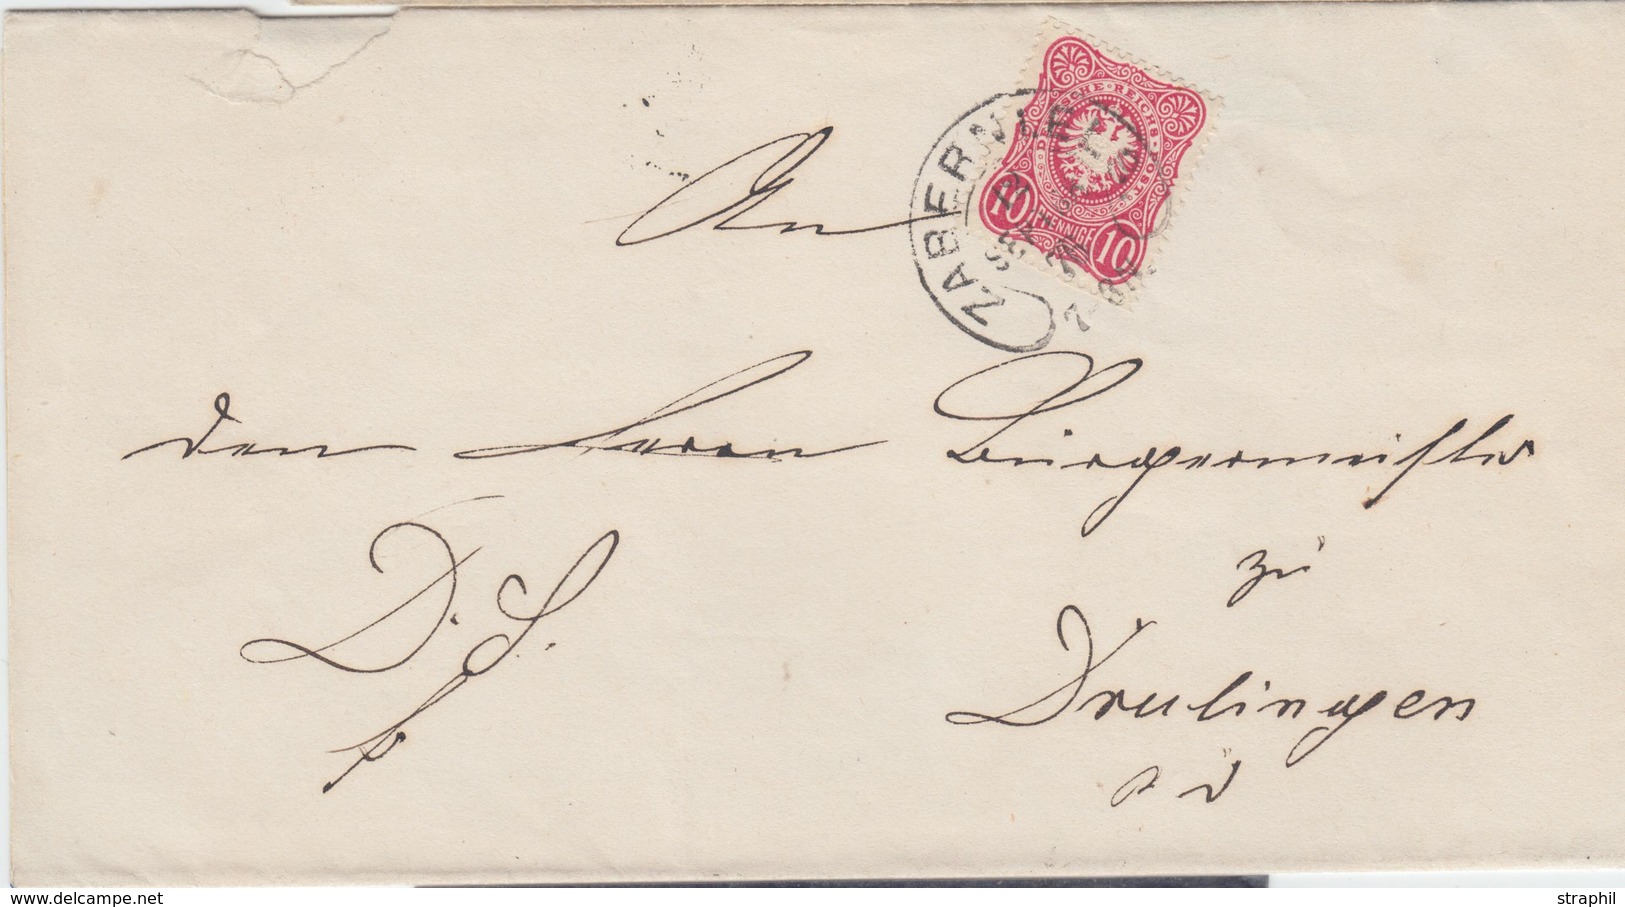 DEUTSCHE · REICHS · POST
10 PFENNIGE 10
ZABERN
An
den Herrn Bürgermeister
zu
D. S. Drulingen
straphil